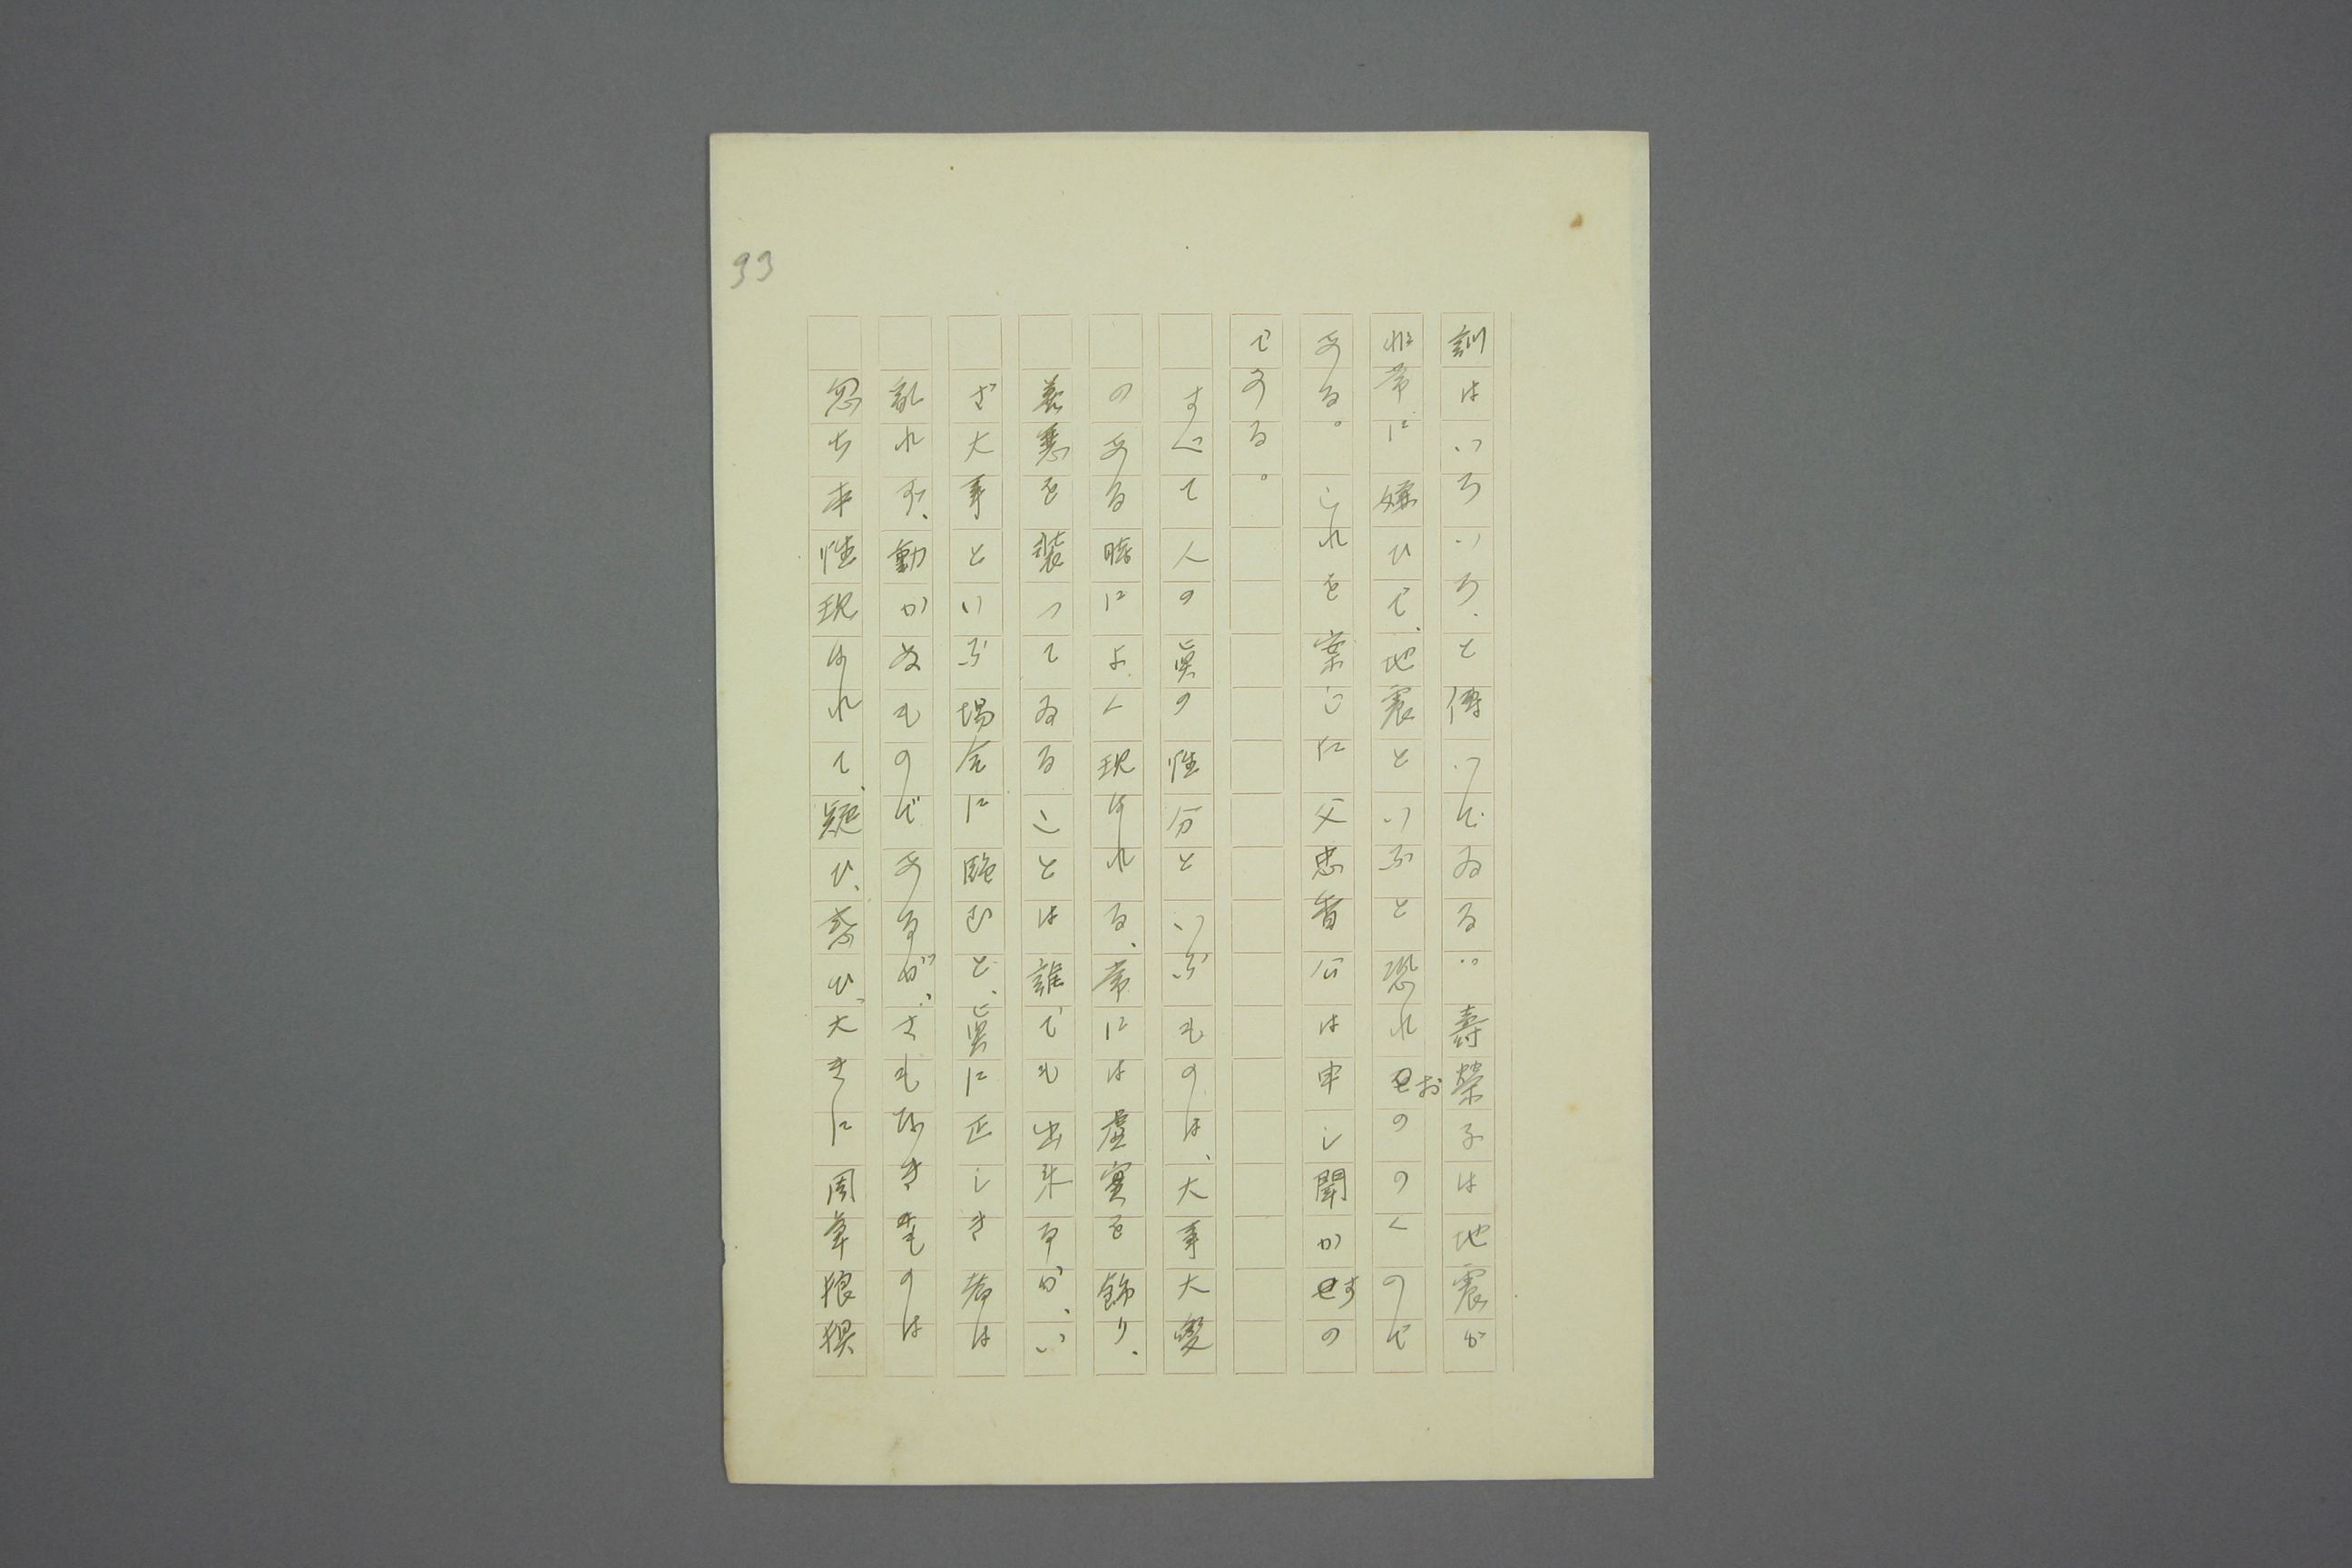 33
訓はいろいろ、と傳ってゐる。壽榮子は地震が
非常に嫌ひで、地震といふと恐れおのゝくので
ある。これを案じた父忠香公は申し聞かすの
である。
すべて人の眞の性分といふものは、大事大變
のある時によく現はれる、常には虚實を飾り、
善悪を装つてゐることは誰でも出来るが、い
ざ大事といふ場合に臨むと、眞に正しき者は
亂れず、動かぬものであるが、さもなきものは
忽ち本性現はれて、疑ひ、惑ひ、大きに周章狼狽